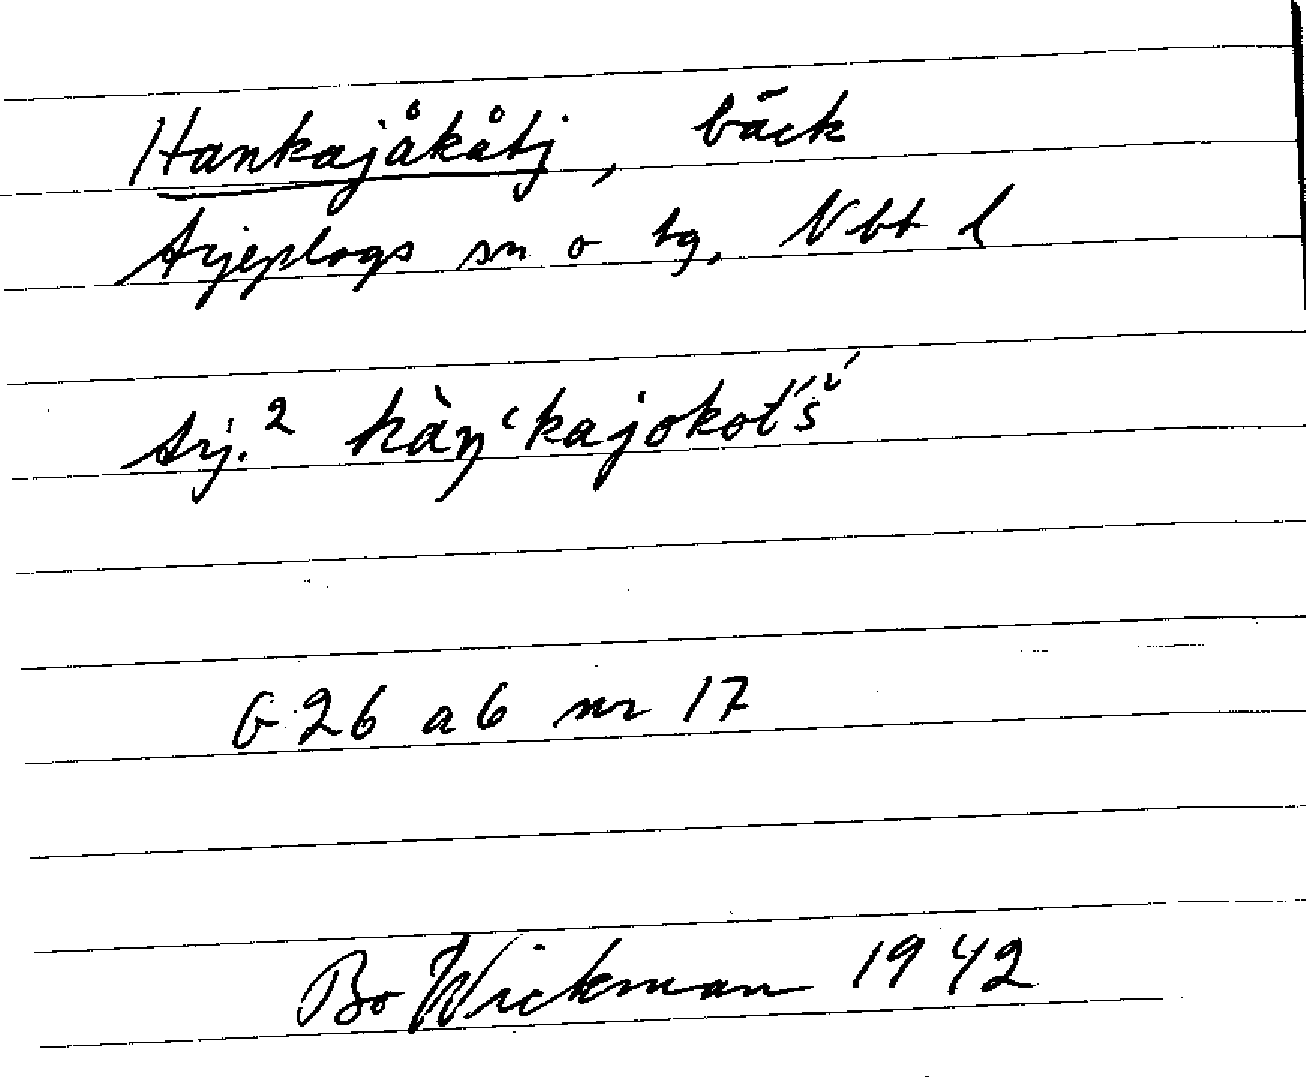 Hankajåkåtj, bäck
Arjeplogs sn o tg, Nbt l
Arj.² hàŋʿkajokot́š́
G 26 a 6 nr 17
Bo Wickman 1942